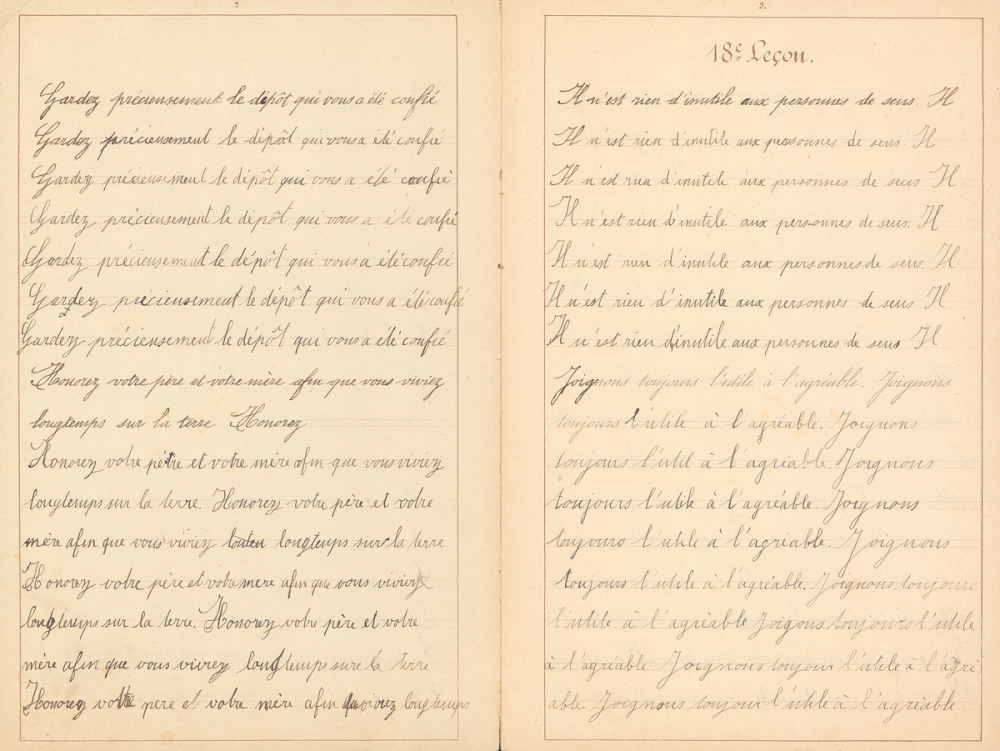 2
Gardez précieusement le dépôt qui vous a été confié.
Gardez précieusement le dépôt qui vous a été confié
Gardez précieusement le dépôt qui vous a été confié
Gardez précieusement le dépôt qui vous a été confié
Gardez précieusement le dépôt qui vous a été confié
Gardez précieusement le dépôt qui vous a été confié
Gardez précieusement le dépôt qui vous a été confié
Honorez votre père et votre mère afin que vous viviez
longtemps sur la terre Honorez
Honorez votre père et votre mère afin que vous viviez
longtemps sur la terre. Honorez votre père et votre
mère afin que vous viviez longtemps sur la terre
Honorez votre père et votre mere afin que vous viviez
longtemps sur la terre. Honorez votre père et votre
mère afin que vous vivrez longtemps sure la terre
Honorez votre pere et votre mère afin viviez longtemps
3.
18e Leçon.
Il n'est rien d'inutile aux personnes de sens. H
Il n'est rien d'inutile aux personnes de sens. H
Il n'est rien d'inutile aux personnes de sens H
Il n'est rien d'inutile aux personnes de sens. H
Il n'est rien d'inutile aux personnes de sens. H
Il n'est rien d'inutile aux personnes de sens H
Il n'est rien d'inutile aux personnes de sens H
Joignons toujours l'utile à l'agréable. Joignons
toujours l'utile à l'agréable. Joignons
toujours l'util à l'agréable. Joignons
toujours l'utile à l'agréable. Joignons
toujours l'utile à l'agréable. Joignons
toujours l'utile à l'agréable. Joignons toujours
l'utile à l'agréable Joigons toujours l'utile
à l'agréable Joignons toujour l'utile à l'agré
able. Joignons toujour l'utile à l'agréable